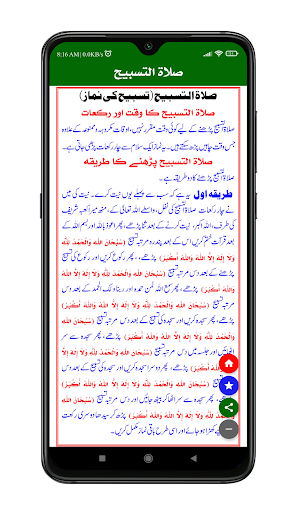 8:16 AM | 0.0KB/s
صلاة التسبيح
صلاۃ التسبیح (تسبیح کی نماز)
صلاۃ التسبیح کا وقت اور رکعات
صلاۃ التسبیح پڑھنے کے لیے کوئی وقت مقرر نہیں، اوقات مکروہہ و ممنوعہ کے علاوہ
جس وقت چاہیں پڑھ سکتے ہیں۔ یہ نماز ایک سلام سے چار رکعات پڑھی جاتی ہے۔
صلاۃ التسبیح پڑھنے کا طریقہ
صلاۃ التسبیح پڑھنے کا دو طریقہ ہے۔
طریقہ اول یہ ہے کہ سب سے پہلے یوں نیت کرے۔ نیت کی میں
نے چار رکعات صلاۃ التسبیح کی نفل، واسطے اللہ تعالیٰ کے، منھ میرا کعبہ شریف
کی طرف، اللہ اکبر، نیت کرنے کے بعد ثنا پڑھے، پھر اعوذ باللہ اور بسم اللہ کے
بعد قرأت ختم کریں اس کے بعد پندرہ مرتبہ تسبیح (سُبْحَانَ اللّٰهِ وَالْحَمْدُ لِلّٰهِ
وَلَا إِلٰهَ إِلَّا اللّٰهُ وَاللّٰهُ أَكْبَرُ) پڑھے، پھر رکوع کریں، اور رکوع کی تسبیح
پڑھنے کے بعد دس مرتبہ تسبیح (سُبْحَانَ اللّٰهِ وَالْحَمْدُ لِلّٰهِ وَلَا إِلٰهَ إِلَّا اللّٰهُ
وَاللّٰهُ أَكْبَرُ) پڑھے، پھر سمع اللہ لمن حمدہ اور ربنا لک الحمد کے بعد دس
مرتبہ تسبیح (سُبْحَانَ اللّٰهِ وَالْحَمْدُ لِلّٰهِ وَلَا إِلٰهَ إِلَّا اللّٰهُ وَاللّٰهُ أَكْبَرُ)
پڑھے، پھر سجدہ کرے اور سجدہ کی تسبیح کے بعد دس مرتبہ تسبیح (سُبْحَانَ
اللّٰهِ وَالْحَمْدُ لِلّٰهِ وَلَا إِلٰهَ إِلَّا اللّٰهُ وَاللّٰهُ أَكْبَرُ) پڑھے، پھر سجدہ سے سر
اٹھائیں اور جلسہ میں دس مرتبہ تسبیح (سُبْحَانَ اللّٰهِ وَالْحَمْدُ لِلّٰهِ وَلَا إِلٰهَ
إِلَّا اللّٰهُ وَاللّٰهُ أَكْبَرُ) پڑھے، پھر دوسرا سجدہ کرے اور سجدہ کی تسبیح کے بعد
دس مرتبہ تسبیح (سُبْحَانَ اللّٰهِ وَالْحَمْدُ لِلّٰهِ وَلَا إِلٰهَ إِلَّا اللّٰهُ وَاللّٰهُ أَكْبَرُ)
پڑھے، پھر سجدہ سے سر اٹھا کر بیٹھ جائیں اور دس مرتبہ تسبیح (سُبْحَانَ اللّٰهِ
وَالْحَمْدُ لِلّٰهِ وَلَا إِلٰهَ إِلَّا اللّٰهُ وَاللّٰهُ أَكْبَرُ) پڑھ کر سیدھا دوسری رکعت
کھڑا ہو جائے اور اسی طرح باقی نماز مکمل کریں۔